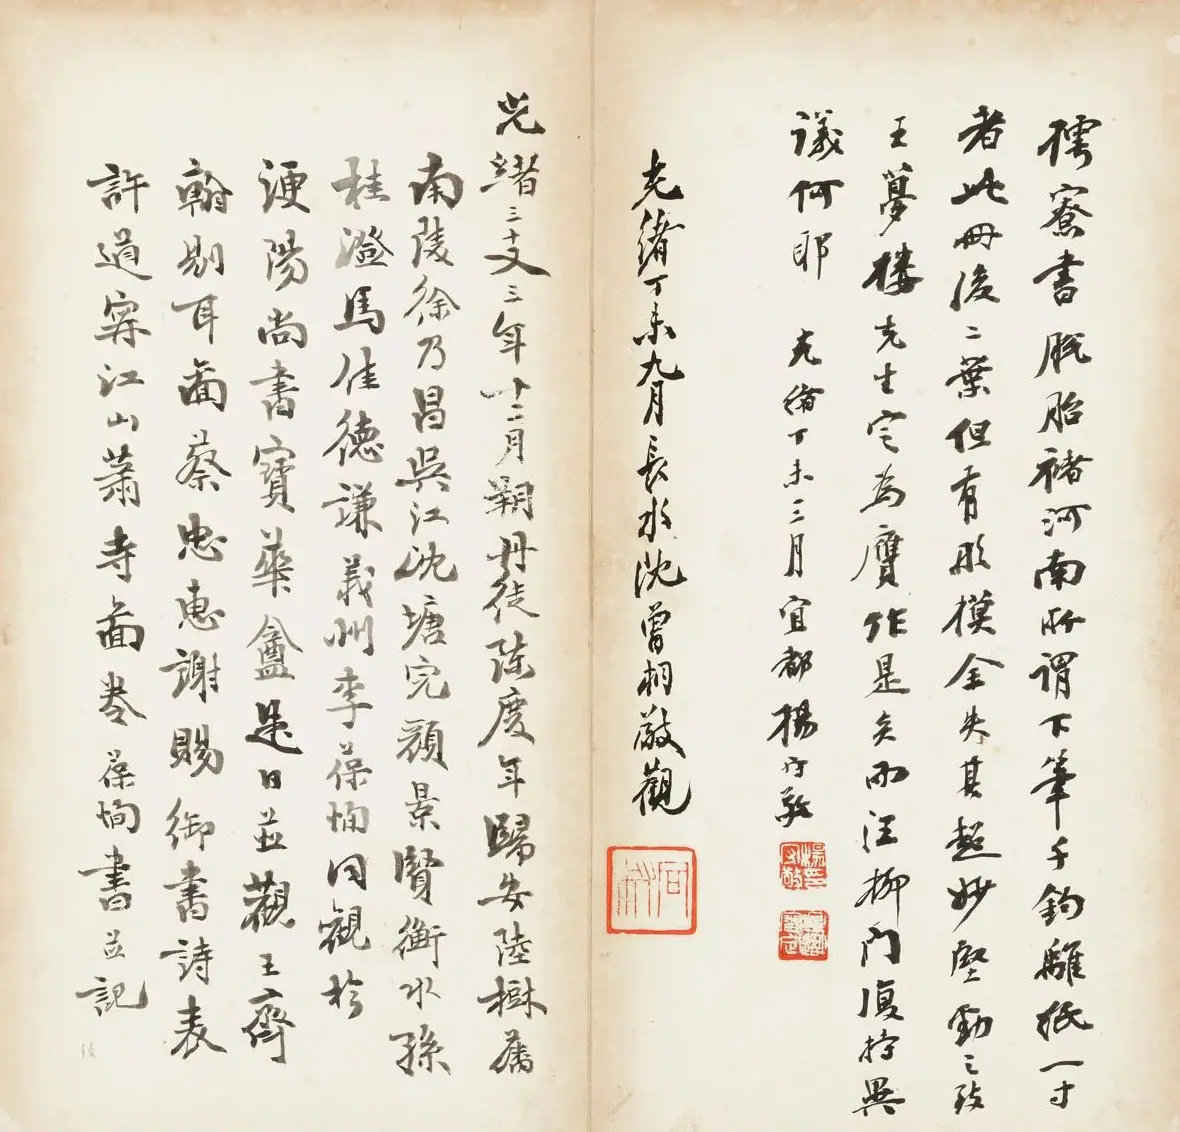 樗寮書脫胎褚河南所謂下筆千鈞離紙一寸
者此冊後二葉但有形摸全失其超妙堅勁之致
王夢樓先生定為贋作是矣而汪柳門復持異
議何耶 光緒丁未三月宜都楊守敬
光緒丁未九月長水沈曾桐敬觀
光緒三十又三年十二月朔丹徒陳慶年歸安陸樹藩
南陵徐乃昌吳江沈塘完顏景賢衡水孫
桂澂馬佳德謙義州李葆恂同觀於
浭陽尚書寶華盦是日並觀王齊
翰剔耳圖蔡忠惠謝賜御書詩表
許道寧江山蕭寺圖卷葆恂書並記